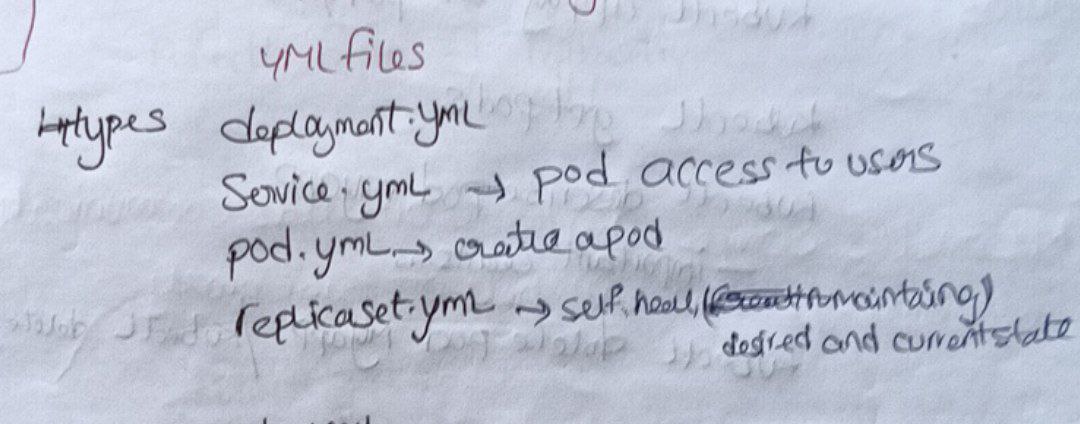 YML files
types deployment.yml
Service.yml → pod access to users
pod.yml → create a pod
replicaset.yml → self heal (maintaing)
desired and current state